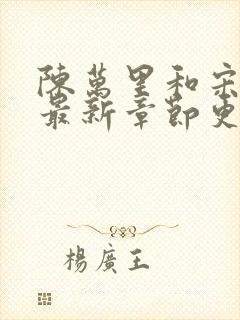 陳萬里和宋
最新章節更
楊廣王